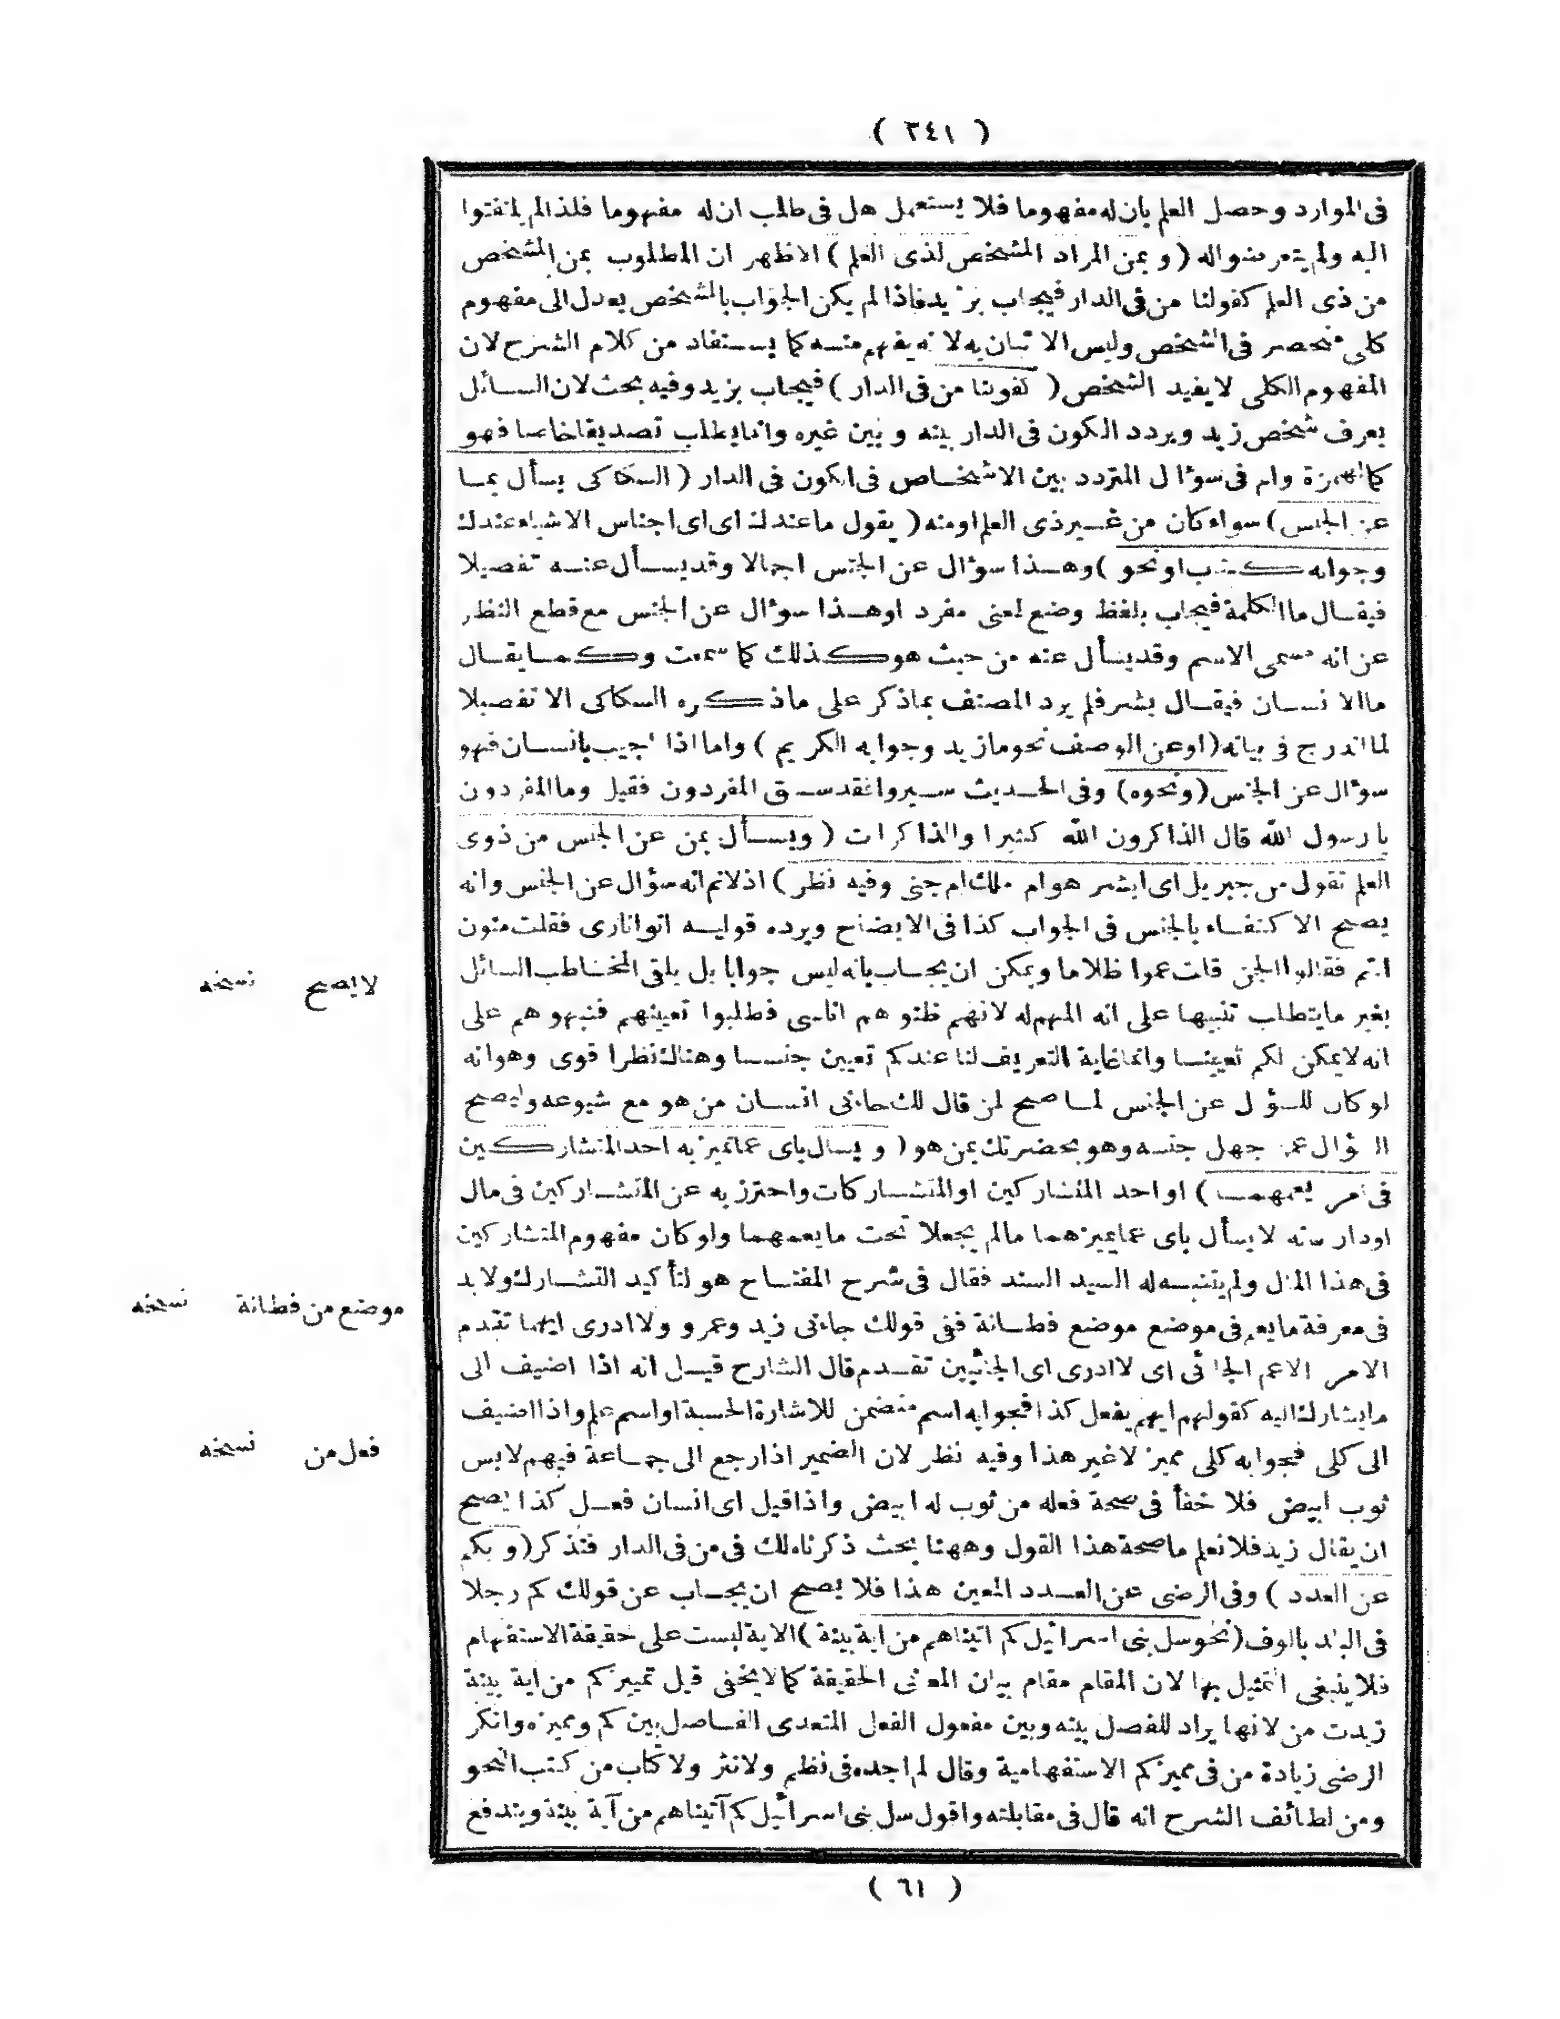 ( ٢٤١ )
فى الموارد وحصل العلم بان له مفهوما فلا يستعمل هل فى طلب ان له مفهوما فلذا لم يلتفتوا
اليه ولم يتعرضوا له ( و بمن المراد المشخص لذى العلم ) الاظهر ان المطلوب بمن المشخص
من ذى العلم كقولنا من فى الدار فيجاب بزيد فاذا لم يكن الجواب بالمشخص يعدل الى مفهوم
كلى منحصر فى الشخص وليس الاتيان به لانه يفهم منسه كما يستفاد من كلام الشرح لان
المفهوم الكلى لا يفيد الشخص ( كقولنا من فى الدار ) فيجاب بزيد وفيه بحث لان السائل
يعرف شخص زيد ويردد الكون فى الدار بينه و بين غيره وانما يطلب تصديقا خاصا فهو
كالهمزة وام فى سوال المتردد بين الاشخاص فى الكون فى الدار ( السكاكى يسأل بما
عن الجنس ) سواء كان من غير ذى العلم او منه ( يقول ما عندك اى اى اجناس الاشياء عندك
وجوابه كتاب او نحو ) وهذا سوال عن الجنس اجمالا وقد يسأل عنه تفصيلا
فيقال ما الكلمة فيجاب بلفظ وضع لمعنى مفرد او هذا سوال عن الجنس مع قطع النظر
عن انه مسمى الاسم وقد يسأل عنه من حيث هو كذلك كما سمعت وكما يقال
ما الانسان فيقال بشر فلم يرد المصنف بما ذكر على ما ذكره السكاكى الا تفصيلا
لما اندرج فى بيانه ( او عن الوصف نحو ما زيد وجوابه الكريم ) واما اذا اجيب بانسان فهو
سوال عن الجنس ( ونحوه ) وفى الحديث سيروا فقد سبق المفردون فقيل وما المفردون
يا رسول الله قال الذاكرون الله كثيرا والذاكرات ( ويسأل بمن عن الجنس من ذوى
العلم تقول من جبريل اى ابشر هو ام ملك ام جنى وفيه نظر ) اذ لا نم انه سؤال عن الجنس وانه
يصح الاكتفاء بالجنس فى الجواب كذا فى الايضاح ويرده قوله اتوا نارى فقلت منون
انتم فقالوا الجن قلت عموا ظلاما ويمكن ان يجاب بانه ليس جوابا بل يلقى المخاطب السائل
بغير ما يتطلب تنبيها على انه المهم له لانهم ظنوهم اناسى فطلبوا تعيينهم فنبهوهم على
انه لا يمكن لكم تعييننا وانما غاية التعريف لنا عندكم تعيين جنسنا وهناك نظر اقوى وهو انه
لو كان للسؤال عن الجنس لما صح لمن قال لك جاءنى انسان من هو مع شيوعه وليصح
السؤال عمن جهل جنسه وهو بحضرتك بمن هو ( و يسال باى عما تميز به احد المتشاركين
فى امر يعمهما ) او احد المتشاركين او المتشاركات واحترز به عن المتشاركين فى مال
او دار فانه لا يسأل باى عما يميزهما ما لم يجعلا تحت ما يعمهما ولو كان مفهوم المتشاركين
فى هذا المال ولم يتنبه له السيد السند فقال فى شرح المفتاح هو لتأكيد التشارك ولا بد
فى معرفة ما يعم فى موضع موضع فطانة ففى قولك جاءنى زيد وعمرو ولا ادرى ايهما تقدم
الامر الاعم الجائى اى لا ادرى اى الجائيين تقدم قال الشارح قيل انه اذا اضيف الى
ما يشارك اليه كقولهم ايهم يفعل كذا فجوابه اسم متضمن للاشارة الحسية او اسم علم واذا اضيف
الى كلى فجوابه كلى مميز لا غير هذا وفيه نظر لان الضمير اذا رجع الى جماعة فيهم لابس
ثوب ابيض فلا خفأ فى صحة فعله من ثوب له ابيض واذا قيل اى انسان فعل كذا يصح
ان يقال زيد فلا نعلم ما صحة هذا القول وههنا بحث ذكرناه لك فى من فى الدار فتذكر ( و بكم
عن العدد ) وفى الرضى عن العدد المعين هذا فلا يصح ان يجاب عن قولك كم رجلا
فى البلد بالوف ( نحو سل بنى اسرائيل كم اتيناهم من اية بينة ) الاية ليست على حقيقة الاستفهام
فلا ينبغى التمثيل بها لان المقام مقام بيان المعنى الحقيقة كما لا يخفى قيل تمييز كم من اية بينة
زيدت من لانها يراد للفصل بينه وبين مفعول الفعل المتعدى الفاصل بين كم ومميزه وانكر
الرضى زيادة من فى مميز كم الاستفهامية وقال لم اجده فى نظم ولا نثر ولا كتاب من كتب النحو
ومن لطائف الشرح انه قال فى مقابلته واقول سل بنى اسرائيل كم آتيناهم من آية بينة ويندفع
لا يصح نسخه
موضع من فطانة نسخه
فعل من نسخه
( ٦١ )